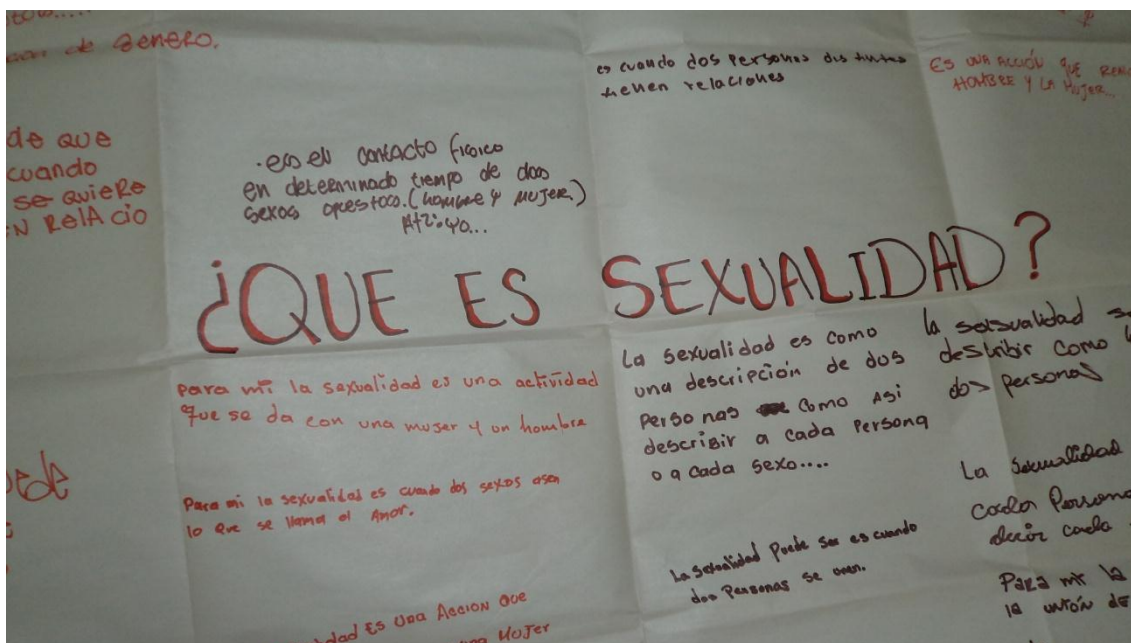 de Genero.
de que
cuando
se quiere
EN RelAcio
.eso el contacto fisico
en determinado tiempo de dos
sexos opuestos. (hombre y mujer)
es cuando dos personas distintas
tienen relaciones
Es una acción que
HOMBRE Y LA MUJER...
¿QUE ES SEXUALIDAD?
Para mi la sexualidad es una actividad
que se da con una mujer y un hombre
Para mi la sexualidad es cuando dos sexos asen
lo que se llama el Amor.
Es una Accion que
una Mujer
La sexualidad es como
una descripción de dos
personas como Asi
describir a cada persona
o a cada sexo....
La sexualidad puede ser es cuando
dos Personas se unen.
la
describir como
dos personas
La Sexualidad
cada Persona
decir cada
Para mi la
la unión de